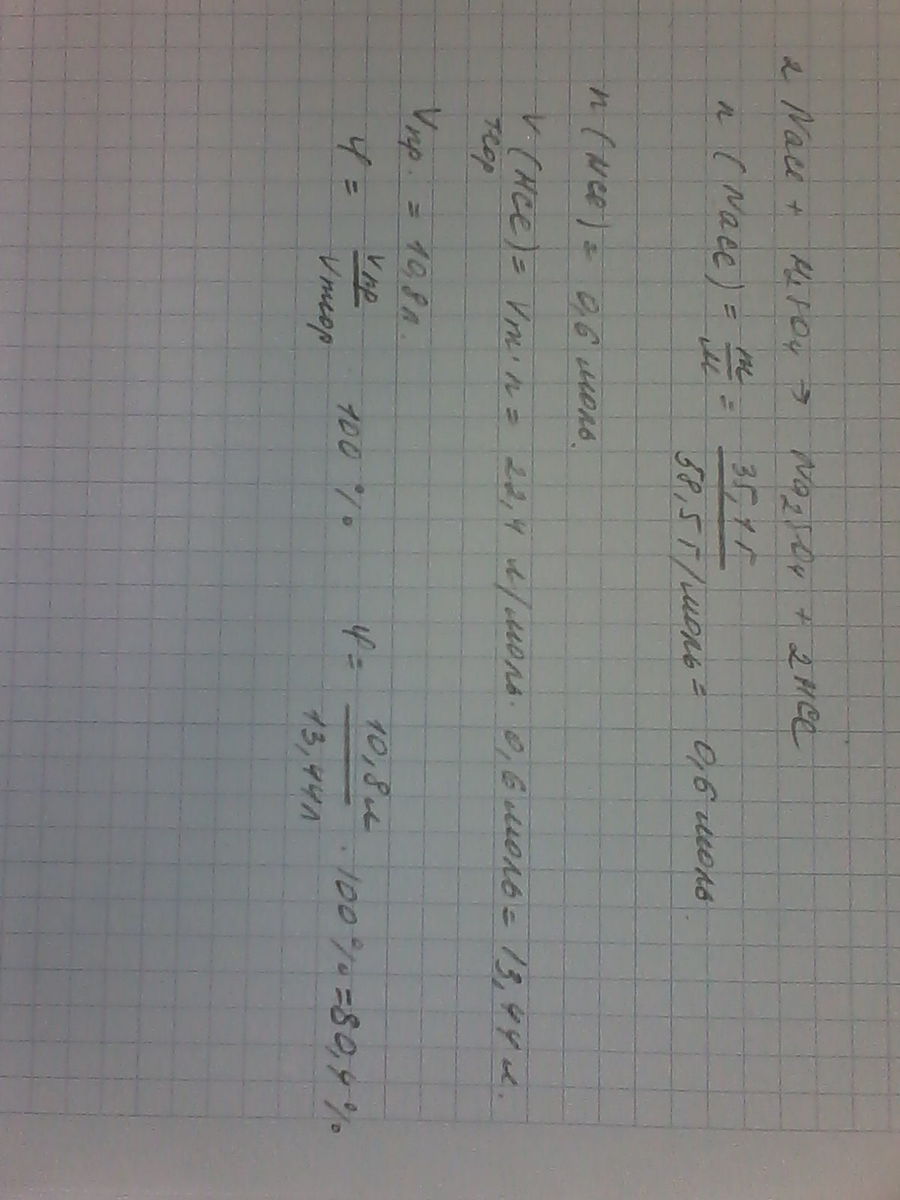 2 NaCl + H2SO4 → Na2SO4 + 2HCl
n (NaCl) = m/M = 35,1 г/58,5 г/моль = 0,6 моль.
n (HCl) = 0,6 моль.
V теор (HCl) = Vm · n = 22,4 л/моль · 0,6 моль = 13,44 л.
Vпр. = 10,8 л.
φ = Vпр/Vтеор · 100 % φ = 10,8 л/13,44 л · 100 % = 80,4 %